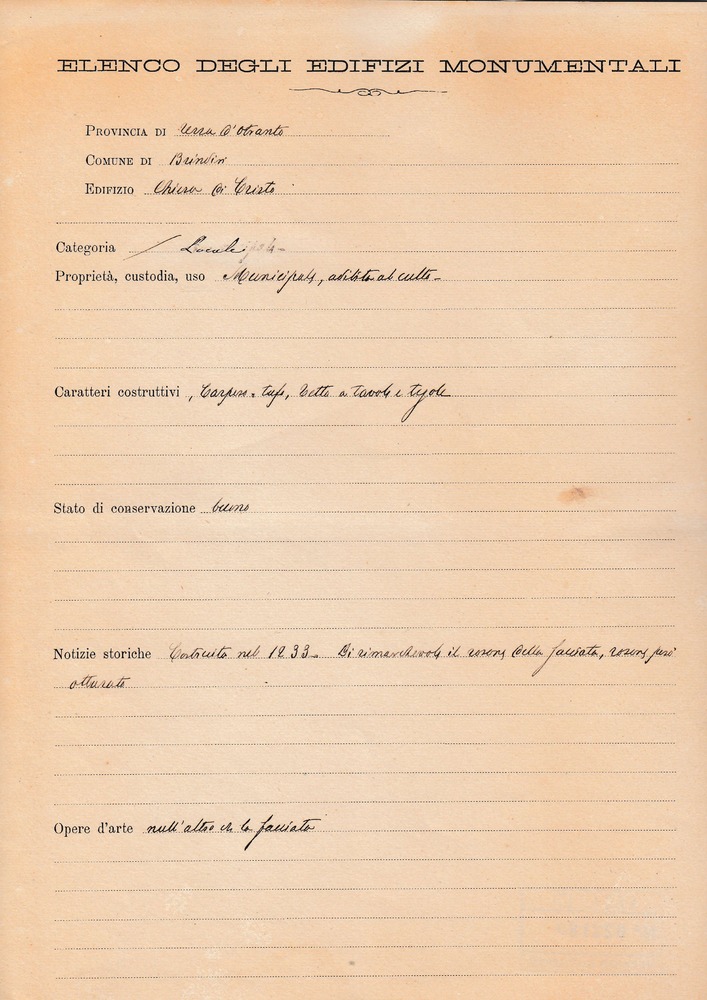 ELENCO DEGLI EDIFIZI MONUMENTALI
PROVINCIA DI Terra d'Otranto
COMUNE DI Brindisi
EDIFIZIO Chiesa di Cristo
Categoria Locale
Proprietà, custodia, uso Municipale, adibita al culto-
Caratteri costruttivi , Carparo e tufo, Tetto a tavole e tegole
Stato di conservazione buono
Notizie storiche Costruita nel 1233- Di rimarchevole il rosone della facciata, rosone però
otturato
Opere d'arte null'altro che la facciata